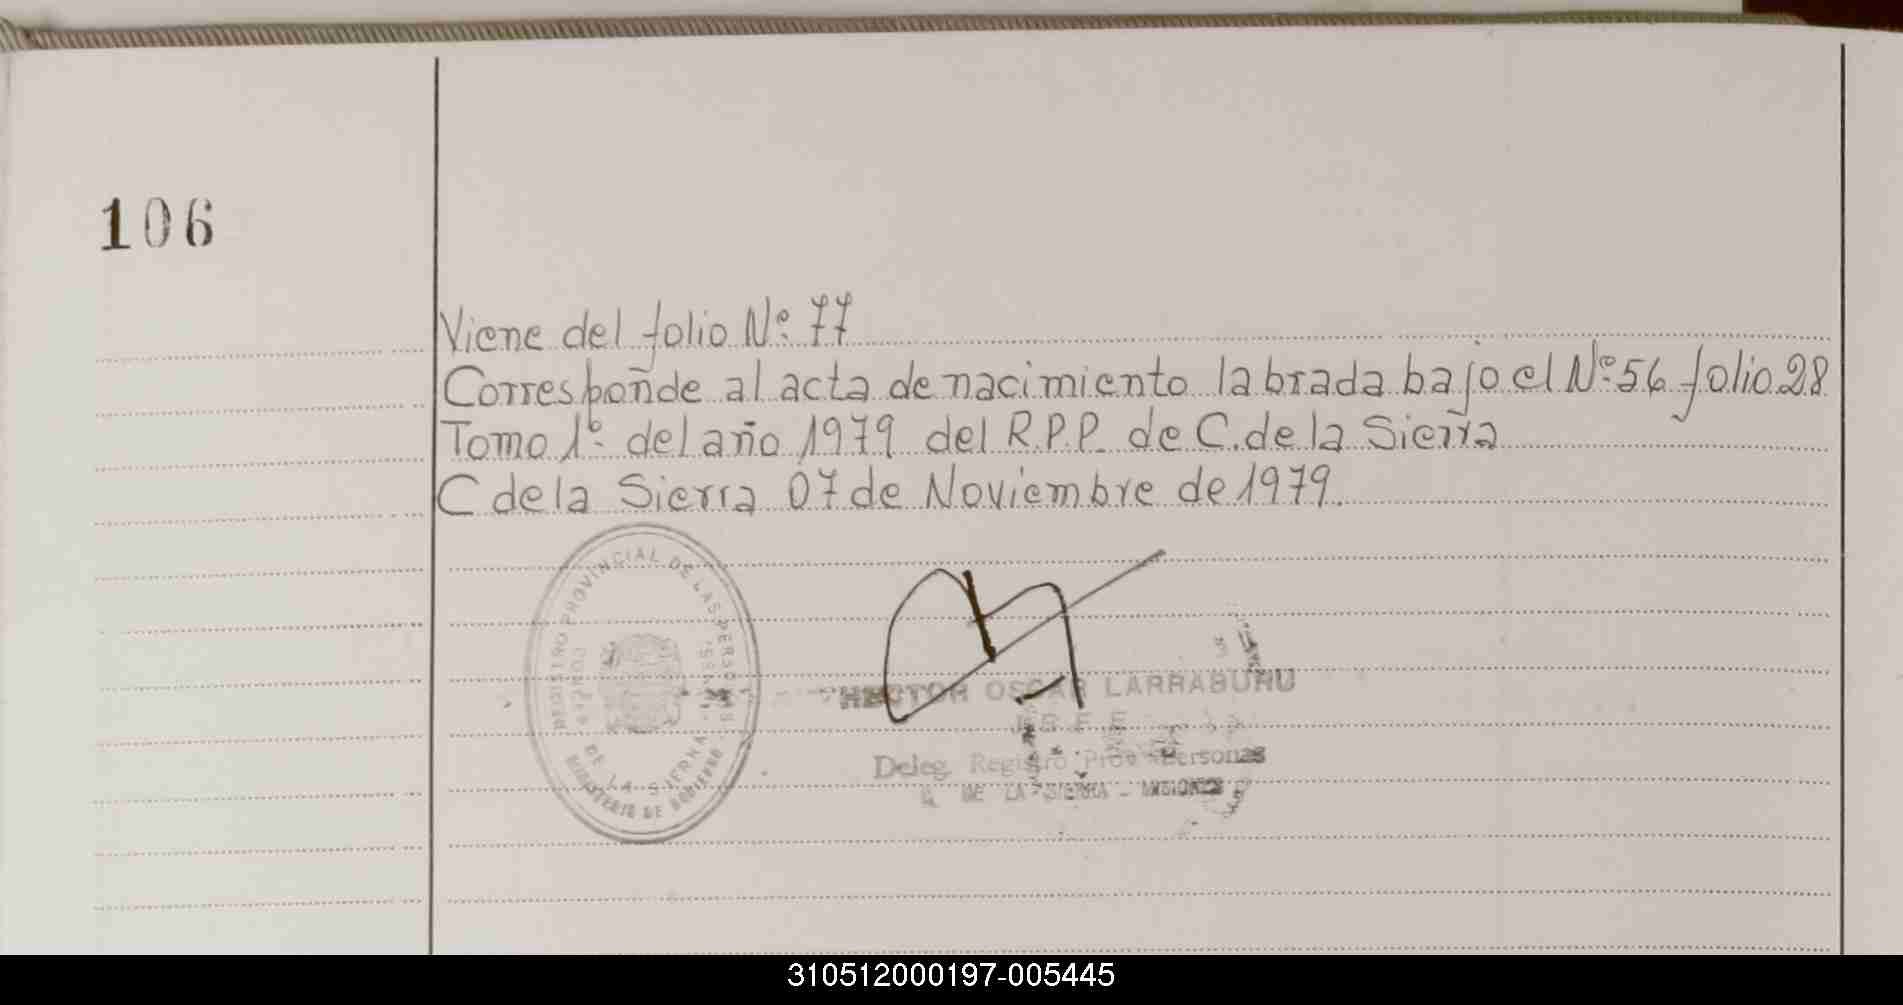 106
Viene del folio Nº: 77
Corresponde al acta de nacimiento labrada bajo el Nº: 56 folio 28
Tomo 1º. del año 1979 del R.P.P. de C. de la Sierra
C de la Sierra 07 de Noviembre de 1979.
REGISTRO PROVINCIAL DE LAS PERSONAS
DE LA SIERRA
MINISTERIO DE GOBIERNO
HECTOR OSCAR LARRABURU
JEFE
Deleg. Registro Prov. Personas
DE LA SIERRA - MISIONES
310512000197-005445